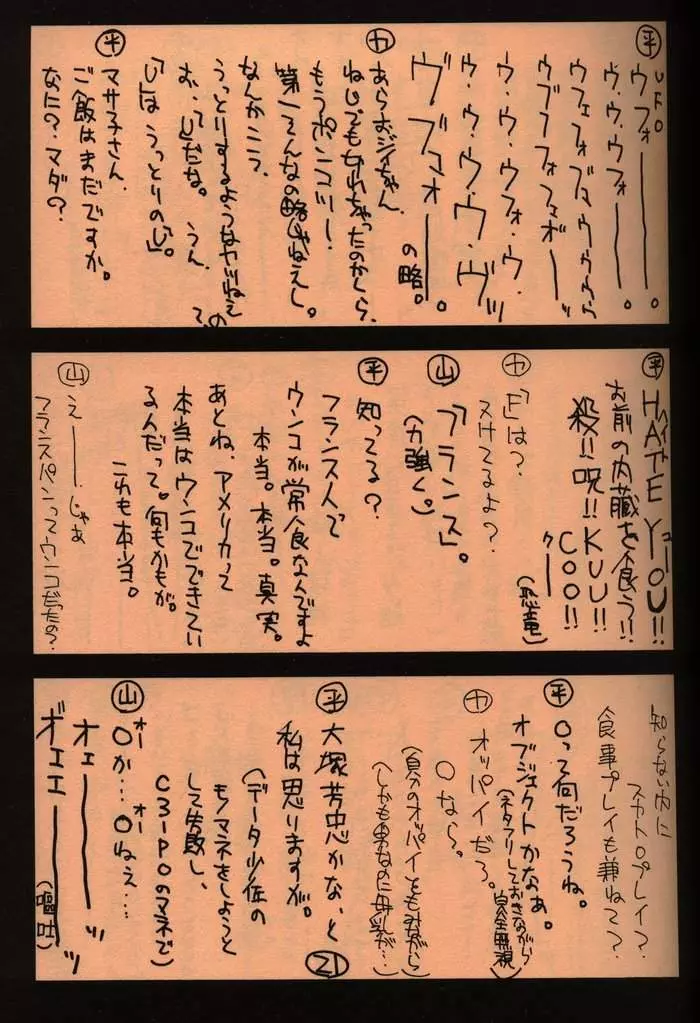 ㊥ UFO
ウフォーーー。
ウ・ウ・ウフォーーー。
ウフェフォブマウウウウ
ウブフフォフェボーーッ
ウ・ウ・ウフォ・ウ・
ウ・ウ・ウ・ウ・ヴッ
ヴブマォーーー。
の略。
㋕ あらおジイちゃん、
ねじでも切れちゃったのかしら、
もうポンコツー！
第一そんなの略じゃねえし。
なんかこう、
うっとりするようなヤツねえの
お、って「U」だな。うん、
「U」は うっとりの「U」。
㊥
マサ子さん、
ご飯はまだですか。
なに？マダ？
㊥ HATE YOU!!
ヘイト ユー
お前の内臓を食う!!
殺!!呪!!KUU!!
COO!!
クー
㋕ 「F」は？
ヌけてるよ？
(恐竜)
㊤ 「フランス」。
(力強く。)
㊥ 知ってる？
フランス人て
ウンコが常食なんですよ
本当。本当。真実。
あとね、アメリカって
本当はウンコでできてい
るんだって。何もかもが。
これも本当。
㊤ えーー、じゃあ
フランスパンってウンコだったの？
知らない内に
スカトロプレイ？
食事プレイも兼ねてて？
㊥ Oって何だろうね。
オブジェクトかなぁ。
(ネタフリしておきながら
完全無視)
㋕ オッパイだろ。
Oなら。
(自分のオッパイをもみながら
㊥ 大塚芳忠かな、と
私は思りますが。
(データ少佐の
モノマネをしようと
して失敗し、
C3-POのマネで)
21
㊤ Oか…Oねぇ…
オー オー
オェーーーッ
ボェエエーーーッ
(嘔吐)